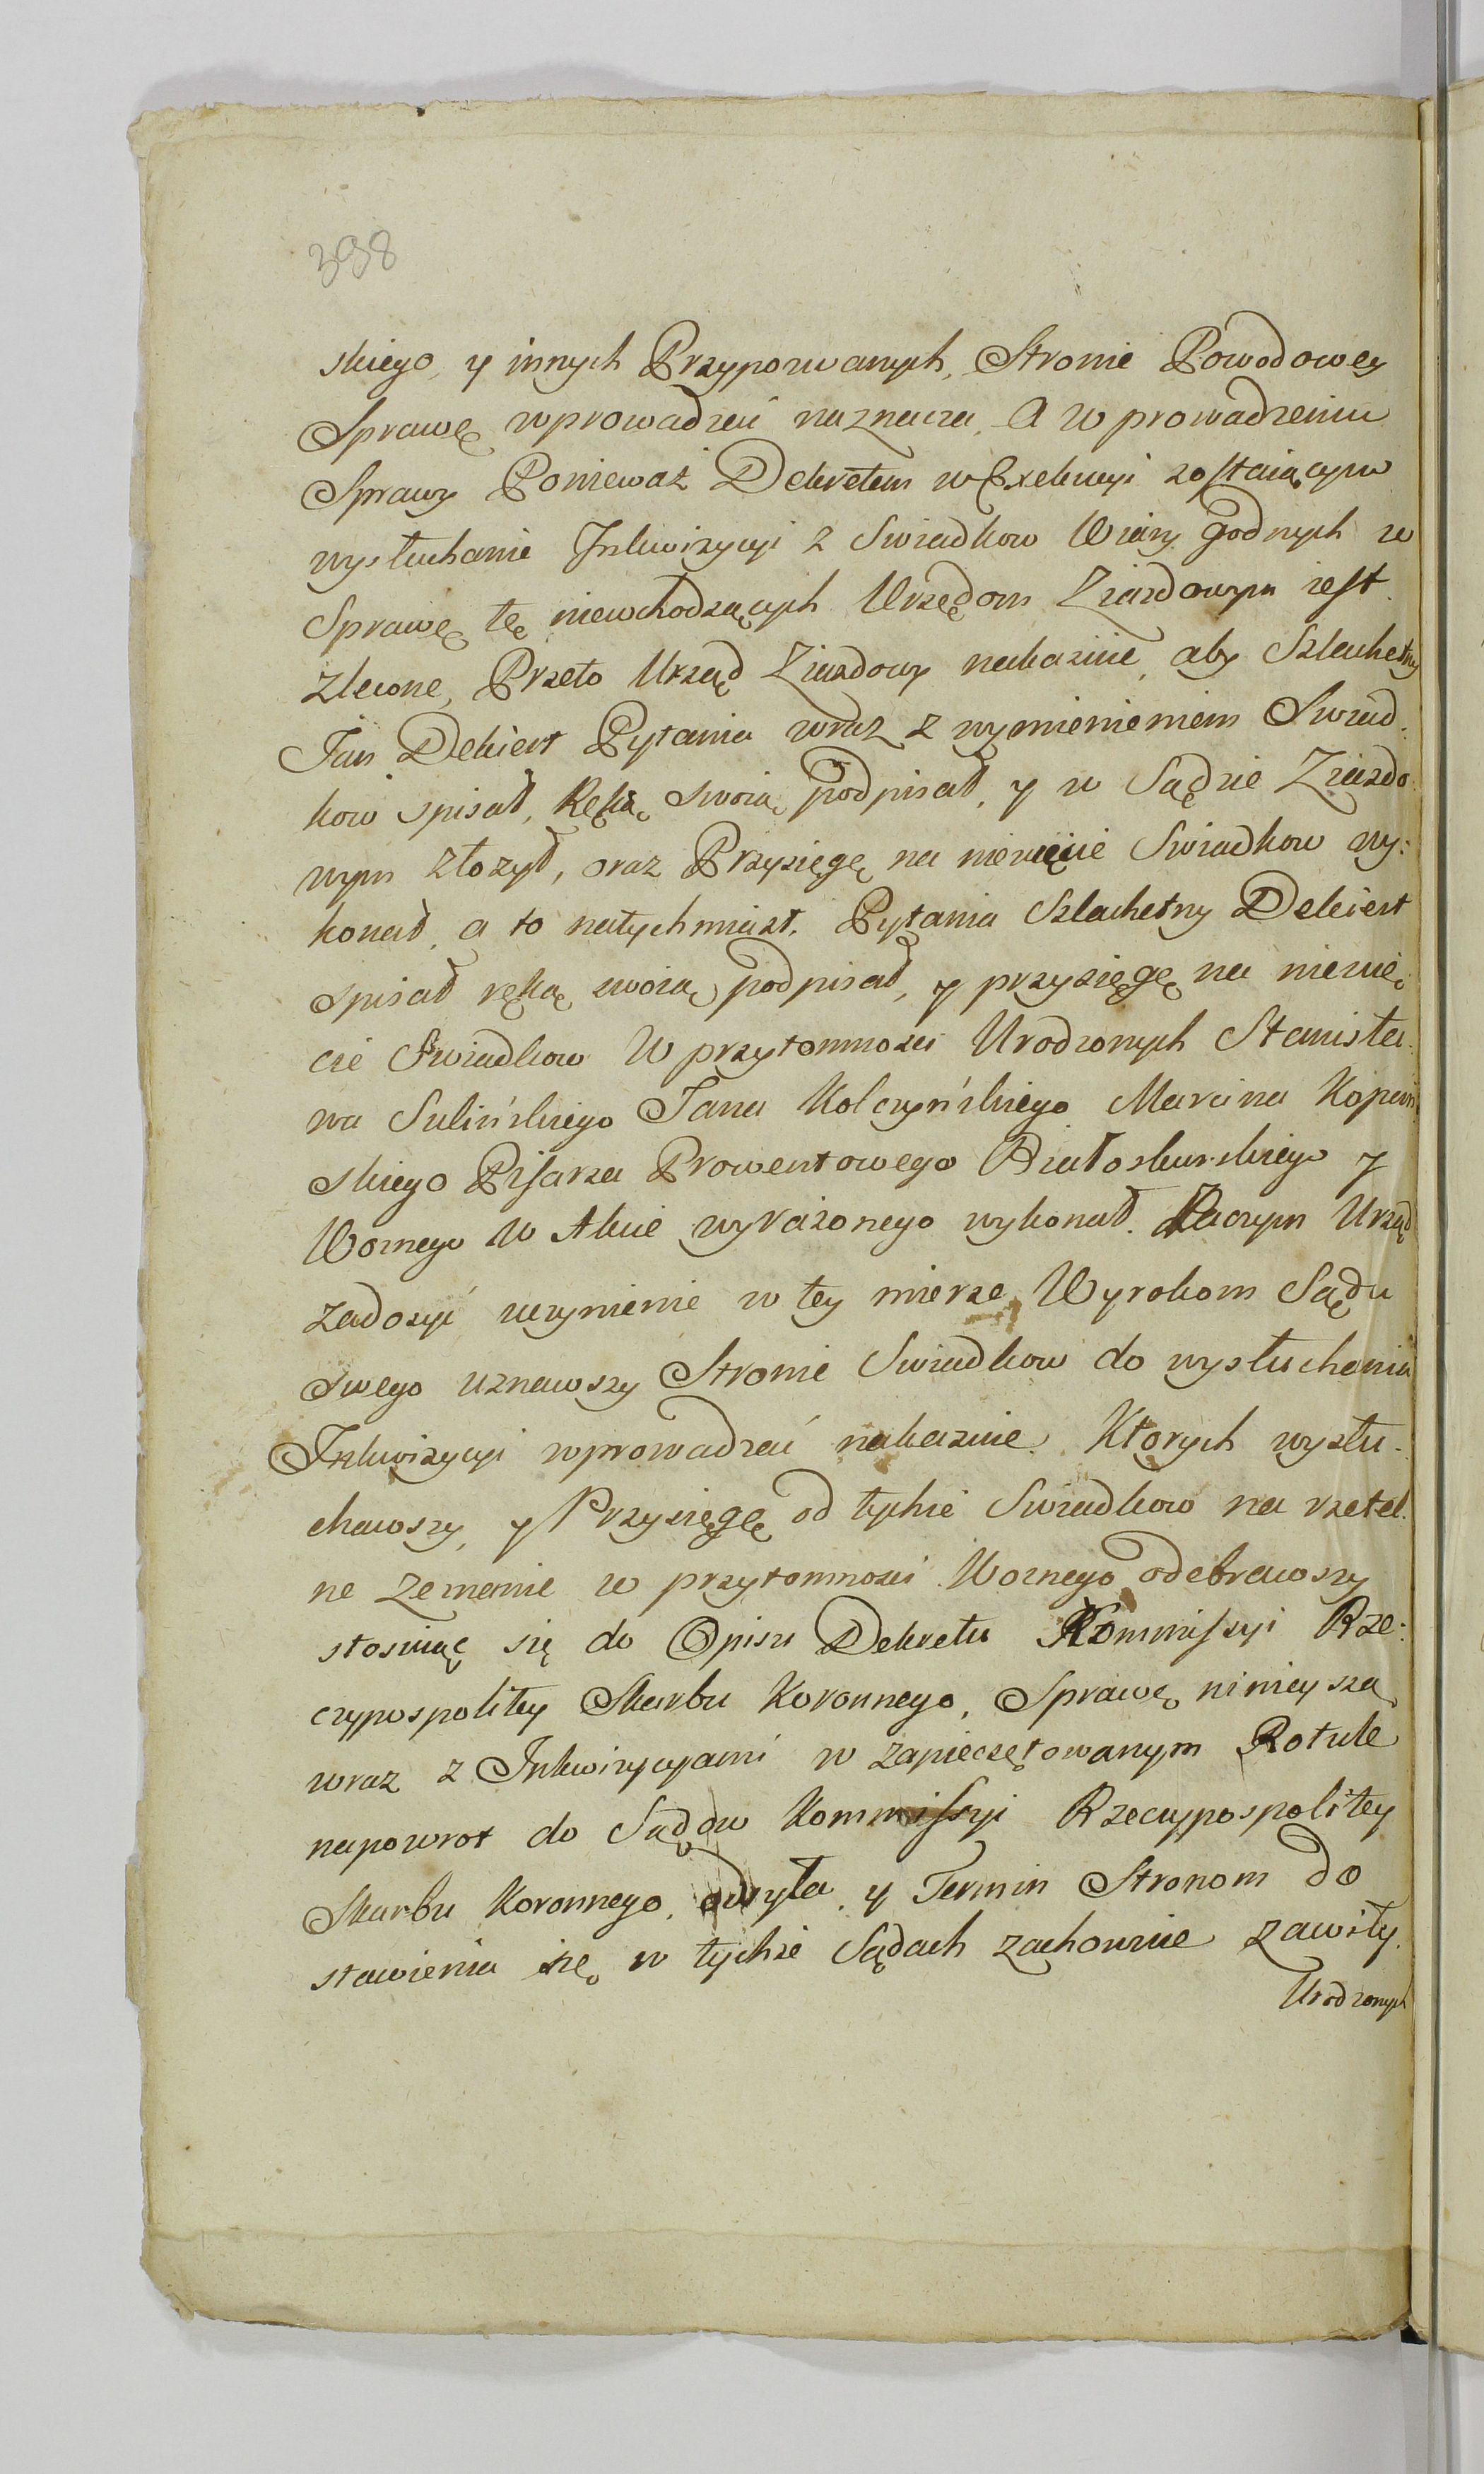 398
skiego, y innych Przypozwanych, Stronie Powodowey
Sprawę wprowadzać naznacza, A w prowadzeniu
Sprawy Ponieważ Dekretem w Exekucyi zostaiącym
wysłuchanie Inkwizycyi z Swiadkow Wiary godnych w
Sprawę tę niewchodzących Urzędom Ziazdowym iest
zlecone, Przeto Urząd Ziazdowy nakazuie, aby Szlachetny
Jan Dekiert Pytania wraz z wymienieniem Swiad-
kow spisał, Ręką swoią podpisał, y w Sądzie Ziazdo-
wym złozył, oraz Przysięgę na niewzięcie Swiadkow wy:
konał, a to natychmiast. Pytania Szlachetny Dekiert
spisał ręką swoią podpisał, y przysięgę na niewzię-
cie Swiadkow W przytomnosci Urodzonych Stanisła-
wa Sulińskiego Jana Kolczyńskiego Marcina
skiego Pisarza Prowentowego Białoskurskiego y
Woznego w Akcie wyrażonego wykonał. Zaczym Urząd
zadosyć uczynienie w tey mierze Wyrokom Sądu
swego uznawszy Stronie Swiadkow do wysłuchania
Inkwizycyi wprowadzać nakazuie. Ktorych wysłu-
chawszy, y Przysięgę od tychże Swiadkow na rzetel-
ne zeznanie w przytomnosci Woznego odebrawszy
stosuiąc się do Opisu Dekretu Kommissyi Rze:
czypospolitey Skarbu Koronnego, Sprawę ninieyszą
wraz z Inkwizycyami w zapieczętowanym Rotule
napowrot do Sądow Kommissyi Rzeczypospolitey
Skarbu Koronnego, odsyła, y Termin Stronom do
stawienia się w tychże Sądach zachowuie zawity.
Urodzonych